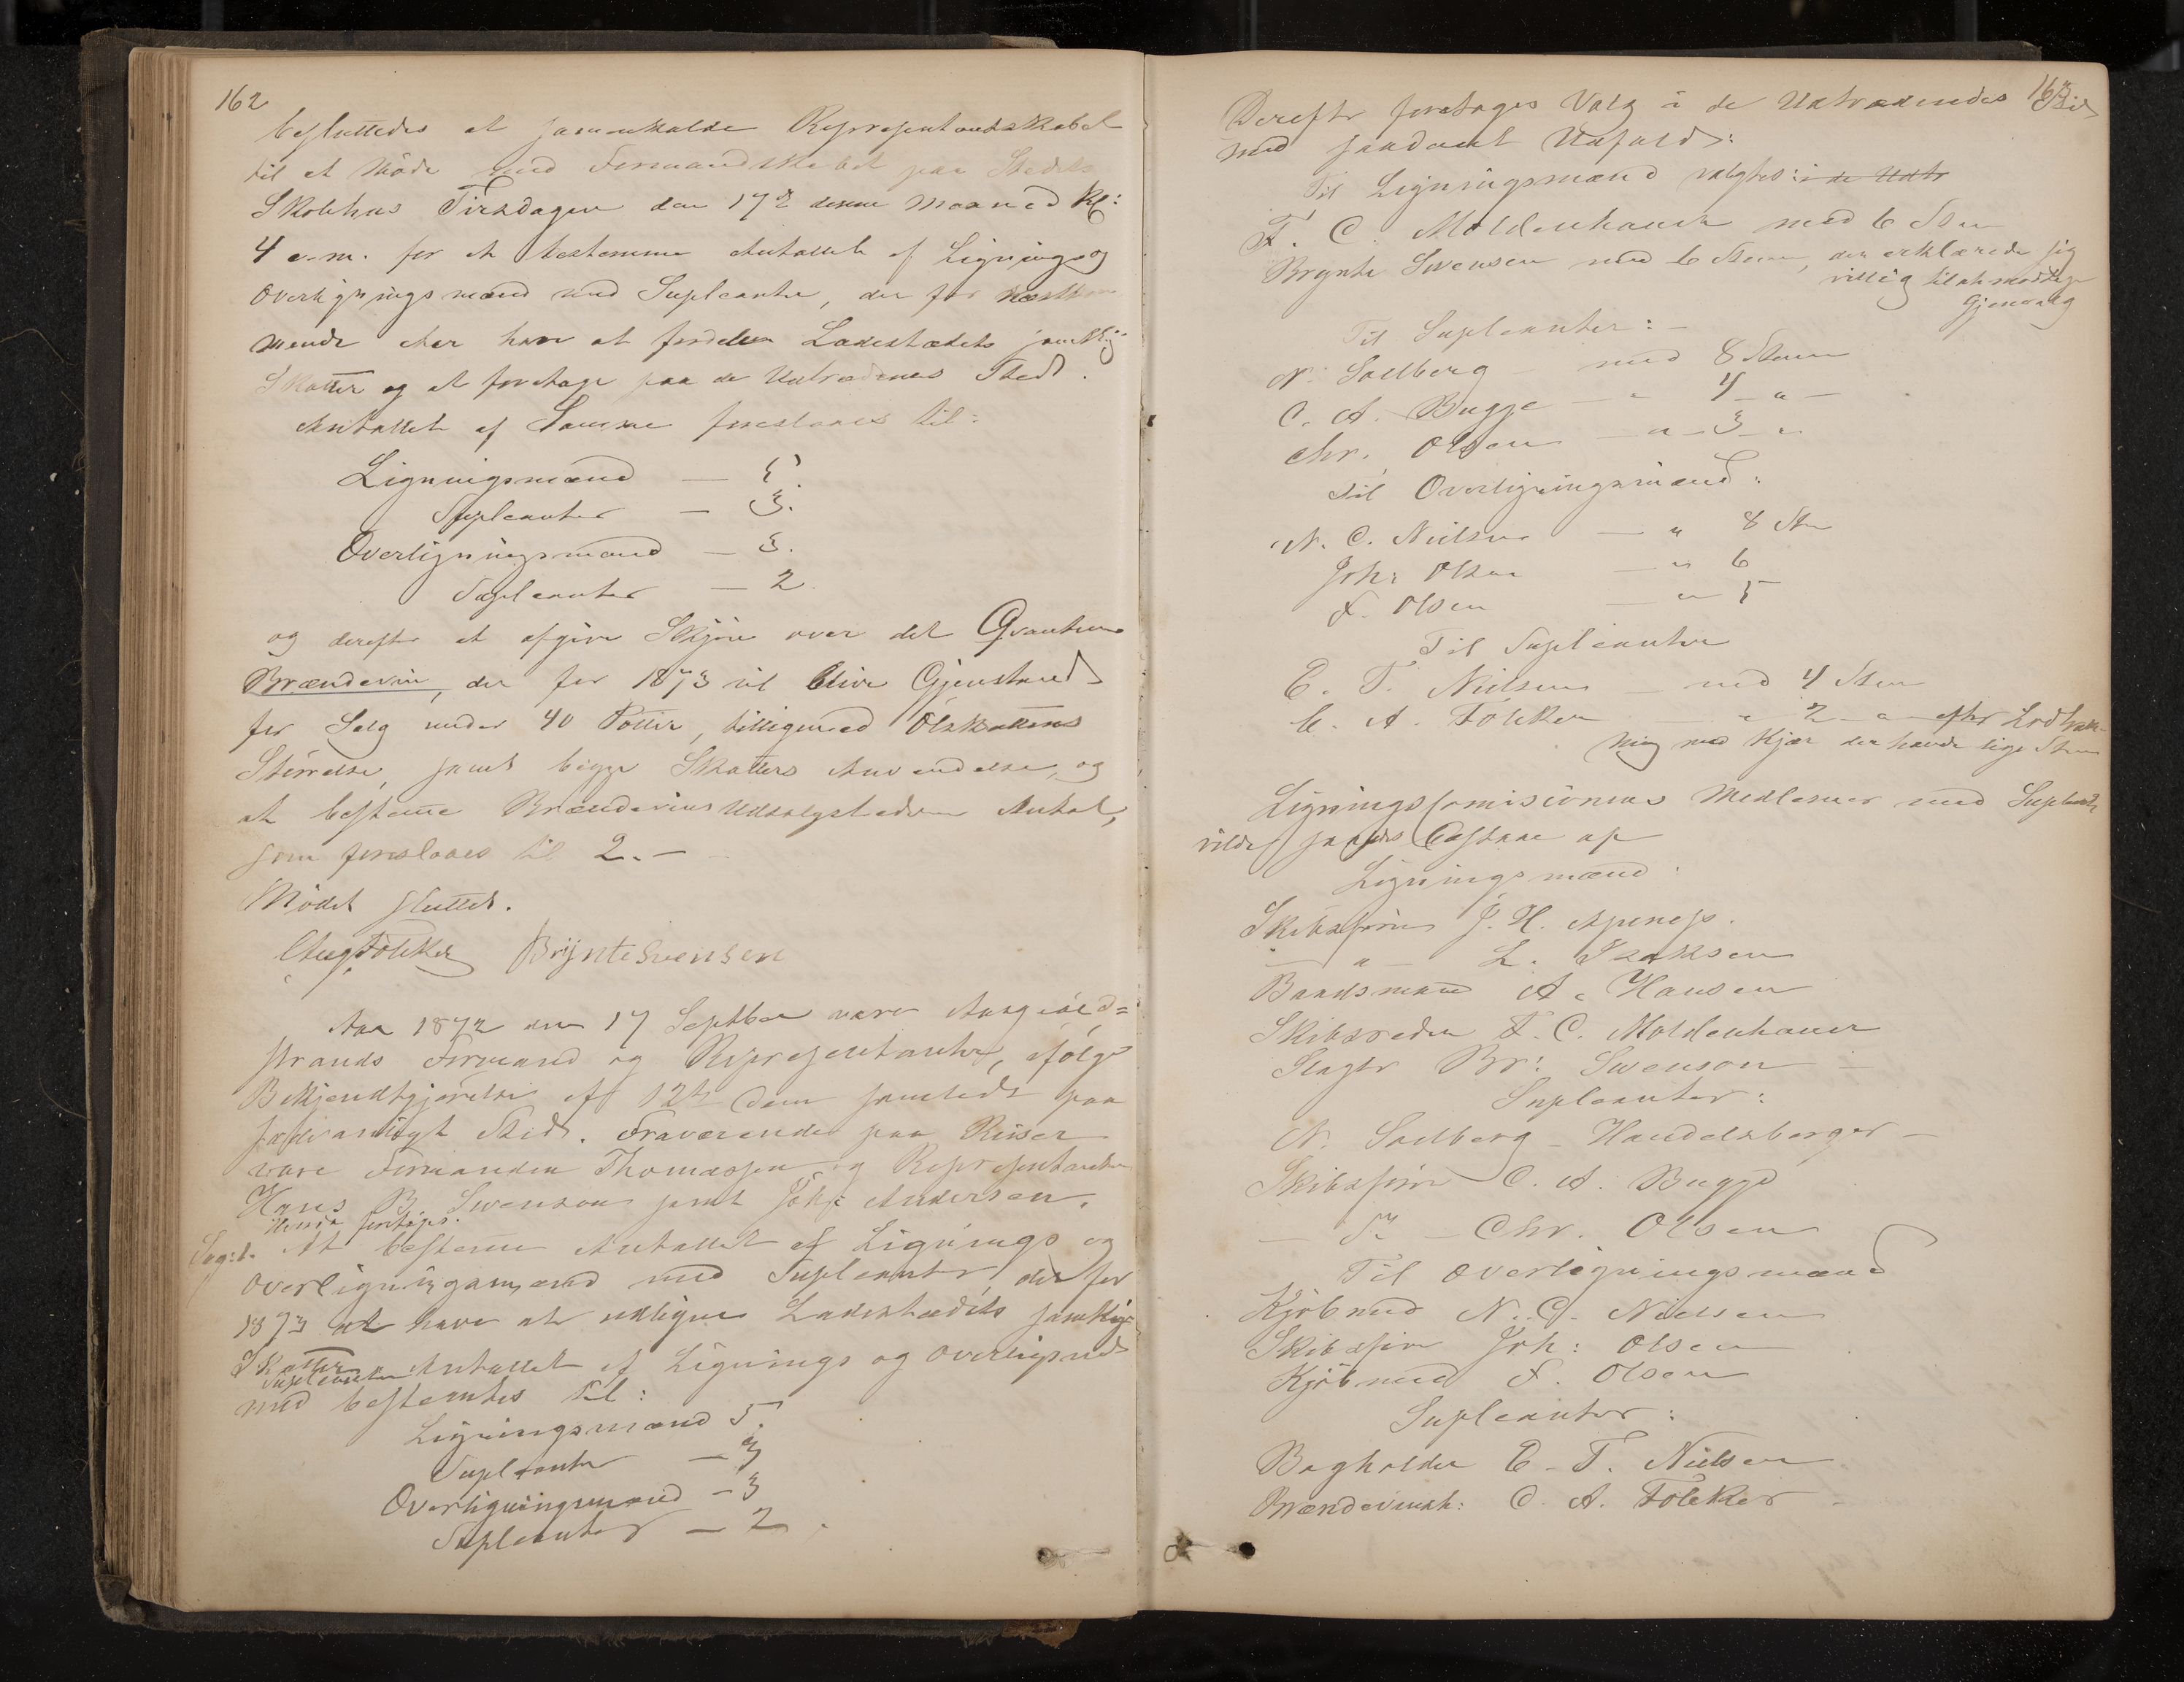 162
besluttedes at sammenkalde Repræsentandtskabet
til et Möde med Formandskabet paa Stedets
Skolehus Tirsdagen den 17de denne Maaned Kl:
4 e.m. for at bestemme Antallet af Lignings og
Overligningsmænd med Supleanter, der for næstkom
mende Aar have at fordele Ladestædets samtlige
Skatter og at foretage paa de Udtrædenes Sted.
Antallet af Samme foreslaaes til:
Ligningsmænd — 5.
Supleanter — 3.
Overligningsmænd — 3.
Supleanter — 2
og derefter at afgive Skjön over det Qvantum
Brændeviin, der for 1873 vil blive Gjenstand
for Salg under 40 Potter, tilligemed Ölskattens
Störrelse, samt begge Skatters Anvendelse, og
at bestemme Brændeviins Udsalgstedernes Antal,
som foreslaaes til 2.—
Mödet sluttet.
Aug Fölcker Brynte Svensen
Aar 1872 den 17 Septber vare Aasgaard=
strands Formænd og Repræsentanter, ifölge
Bekjendtgjörelse af 12te dens samlede paa
sædvanligt Sted. Fraværende paa Reiser
vare Formanden Thomassen og Repræsentanterne
Hans B. Svenson samt Joh: Andersen.
Herved foretages.
Sag: 1. At bestemme Antallet af Lignings og
Overligningsmænd med Supleanter der for
1873 at have at udligne Ladestædets samtlige
Skatter. Antallet af Lignings og Overlignings
Supleanter
mænd bestemtes til:
Ligningsmænd 5.
Supleanter — 3
Overligningsmænd — 3
Supleanter — 2.
163
Derefter foretages Valg i de Udtrædendes Sted
med saadant Udfald:
Til Ligningsmænd valgtes: i de Udtr
F. C. Moldenhauer med 6 Stem
Brynte Svensen med 6 Stem, der erklærede sig
villig til at modtage
Gjenvalg
Til Supleanter: —
N. Solberg — med 8 Stem
C. A. Bugge — " 4 — " —
Chr. Olsen — " — 3 — "
Til Overligningsmænd:
N. C. Nielsen — " 8 Stem
Joh: Olsen — " 6
F. Olsen — " 5
Til Supleanter
E. T. Nielsen — med 4 Stem
C. A. Fölcker " 2 — " — efter Lodtræk-
ning med Kjær der havde lige Stem
Ligningscomisionens Medlemer med Supleanter
vilde saaledes bestaae af
Ligningsmænd
Skibsförer J. H. Apenes.
— " — L. Isaksen
Baadsmand A. Hansen
Skibsreder F. C. Moldenhauer
Slagter Br: Swenson —
Supleanter:
N. Solberg — Handelsborger —
Skibsförer C. A. Bugge
— " — Chr. Olsen
Til Overligningsmænd
Kjöbmand N. C. Nielsen
Skibsförer Joh: Olsen
Kjöbmand F. Olsen
Supleanter:
Bogholder E. T. Nielsen
Brændevinsh: C. A. Fölcker